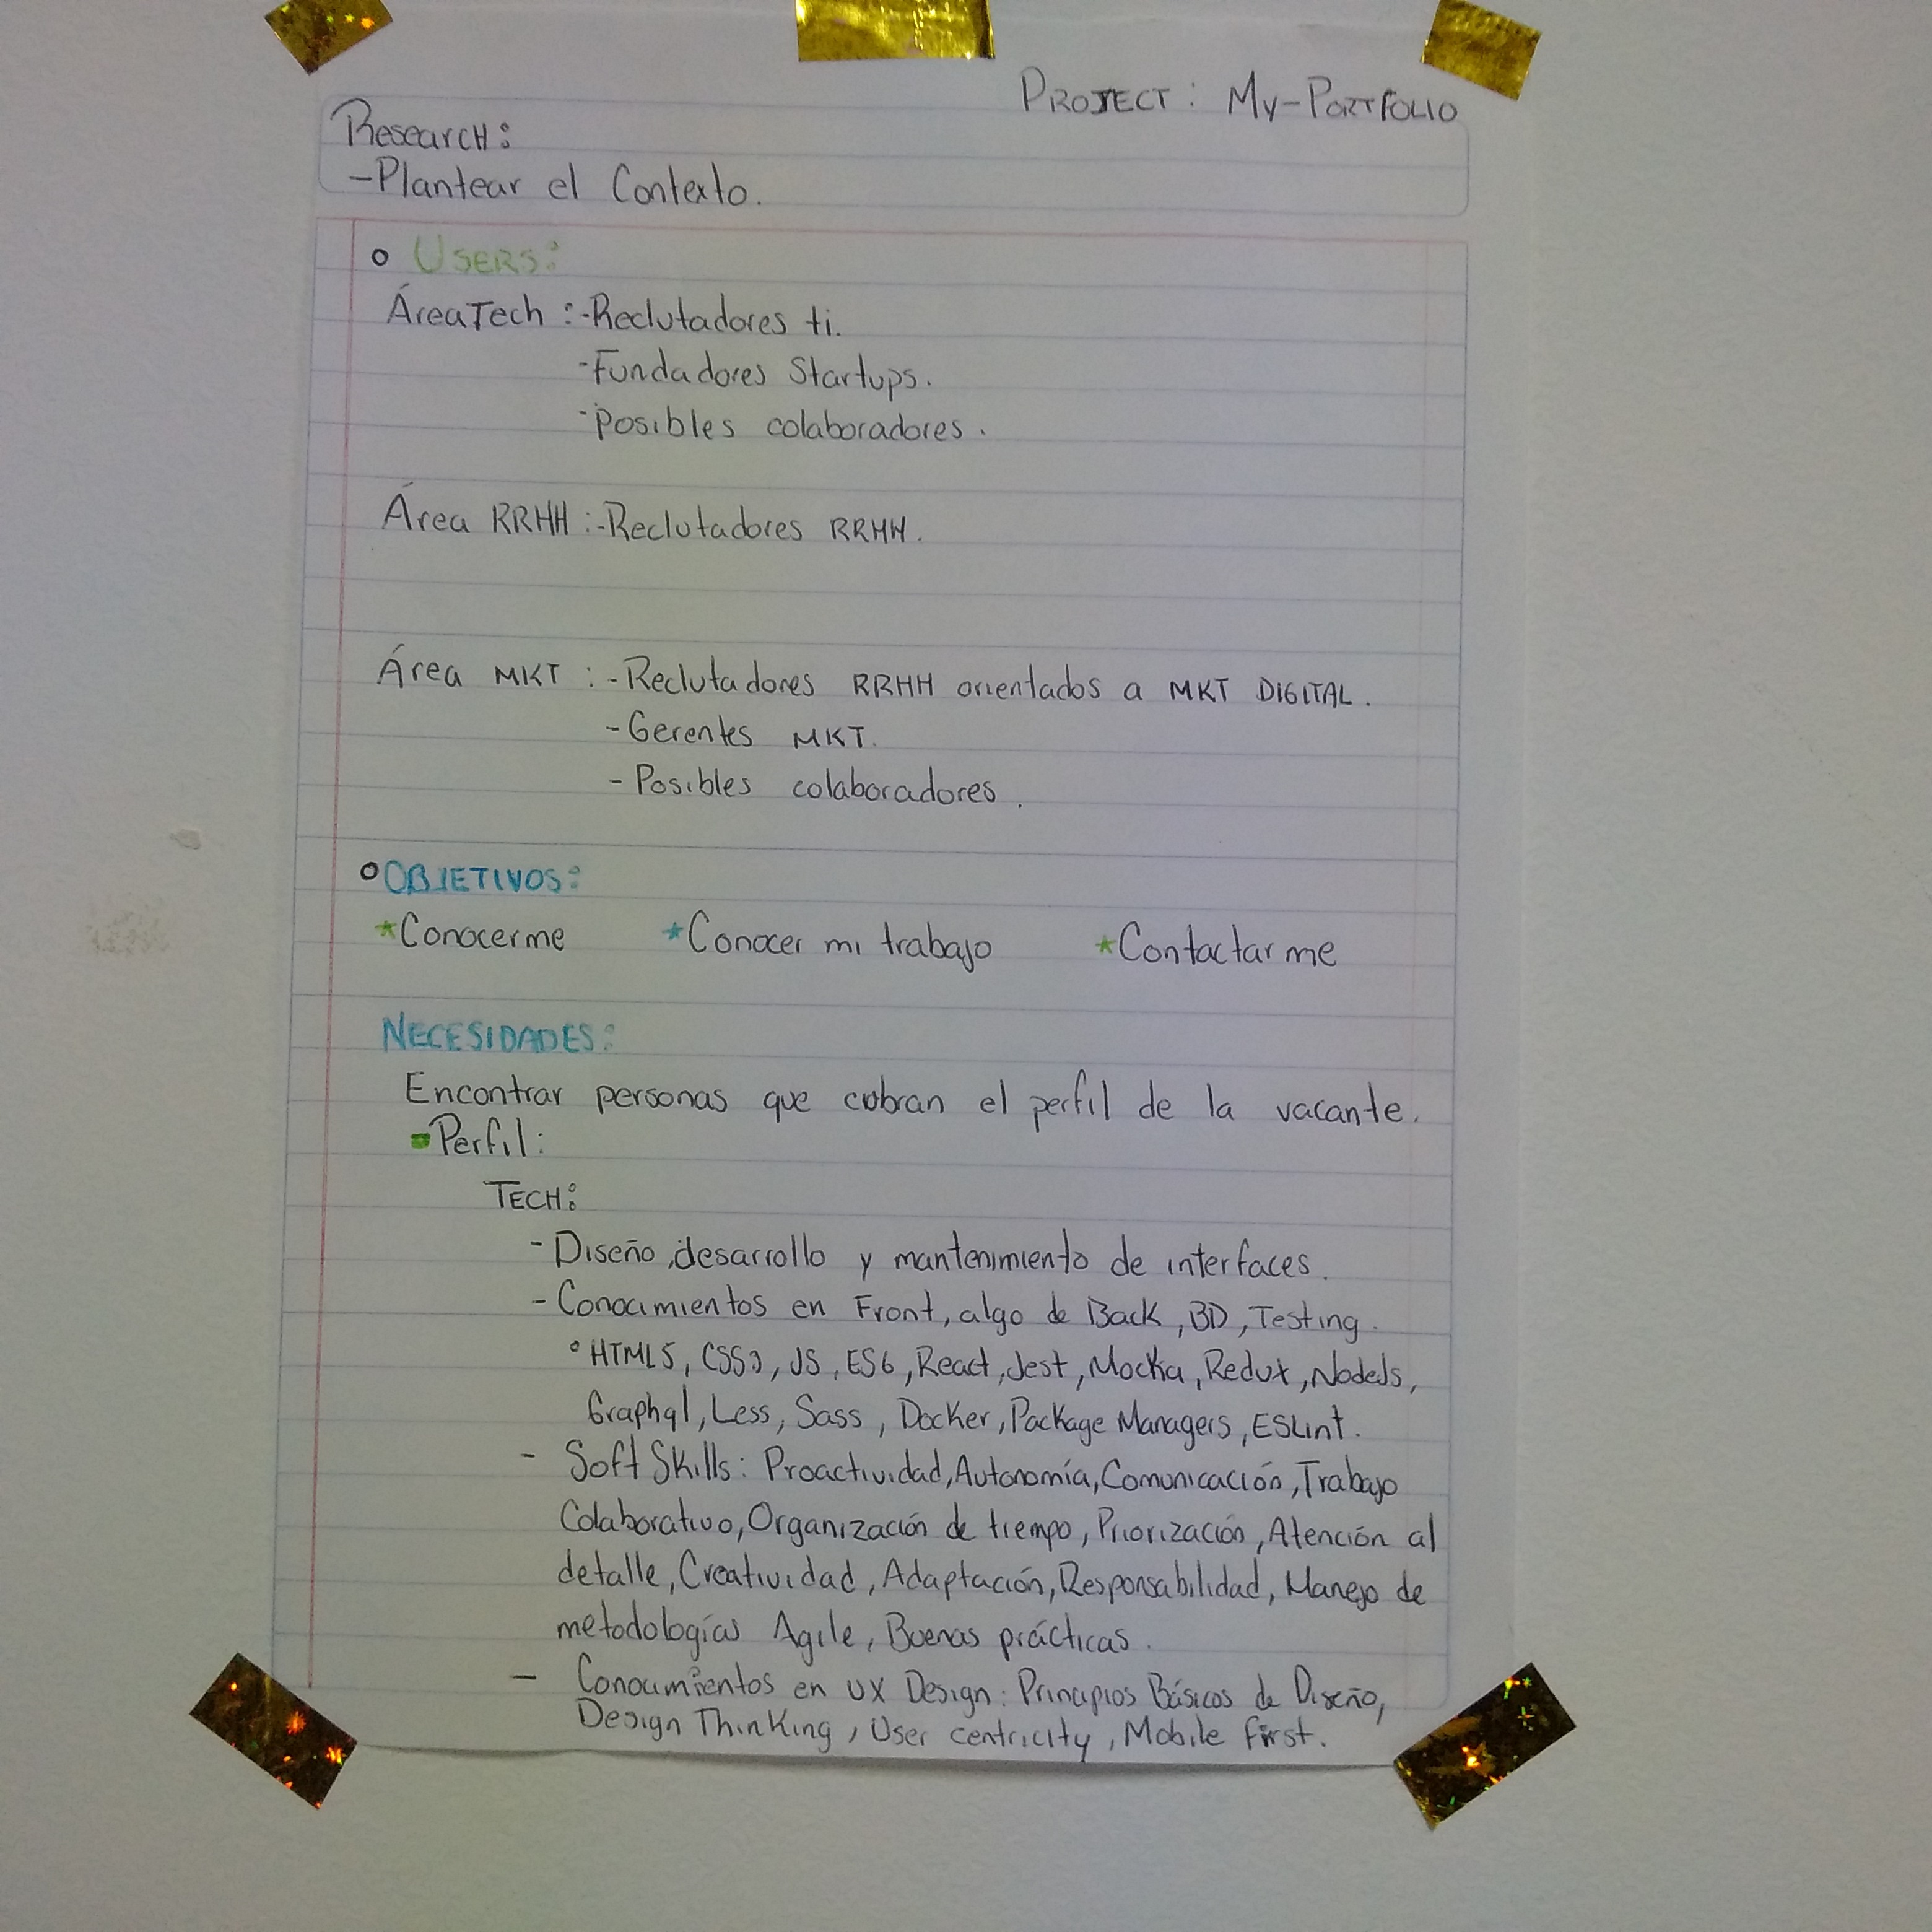 PROJECT: My-PORTFOLIO
ResearcH:
-Plantear el Contexto.
USERS:
ÁreaTech :-Reclutadores ti.
-Fundadores Startups.
-Posibles colaboradores.
Área RRHH :-Reclutadores RRHH.
Área MKT : -Reclutadores RRHH orientados a MKT DIGITAL.
-Gerentes MKT.
- Posibles colaboradores.
OBJETIVOS:
*Conocerme *Conocer mi trabajo *Contactarme
NECESIDADES:
Encontrar personas que cubran el perfil de la vacante.
Perfil:
TECH:
- Diseño, desarrollo y mantenimiento de interfaces.
- Conocimientos en Front, algo de Back, BD, Testing.
° HTML5, CSS3, JS, ES6, React, Jest, Mocka, Redux, NodeJs,
Graphql, Less, Sass, Docker, Package Managers, ESLint.
- Soft Skills: Proactividad, Autonomía, Comunicación, Trabajo
Colaborativo, Organización de tiempo, Priorización, Atención al
detalle, Creatividad, Adaptación, Responsabilidad, Manejo de
metodologías Agile, Buenas prácticas.
- Conocimientos en UX Design: Principios Básicos de Diseño,
Design Thinking, User centricity, Mobile first.